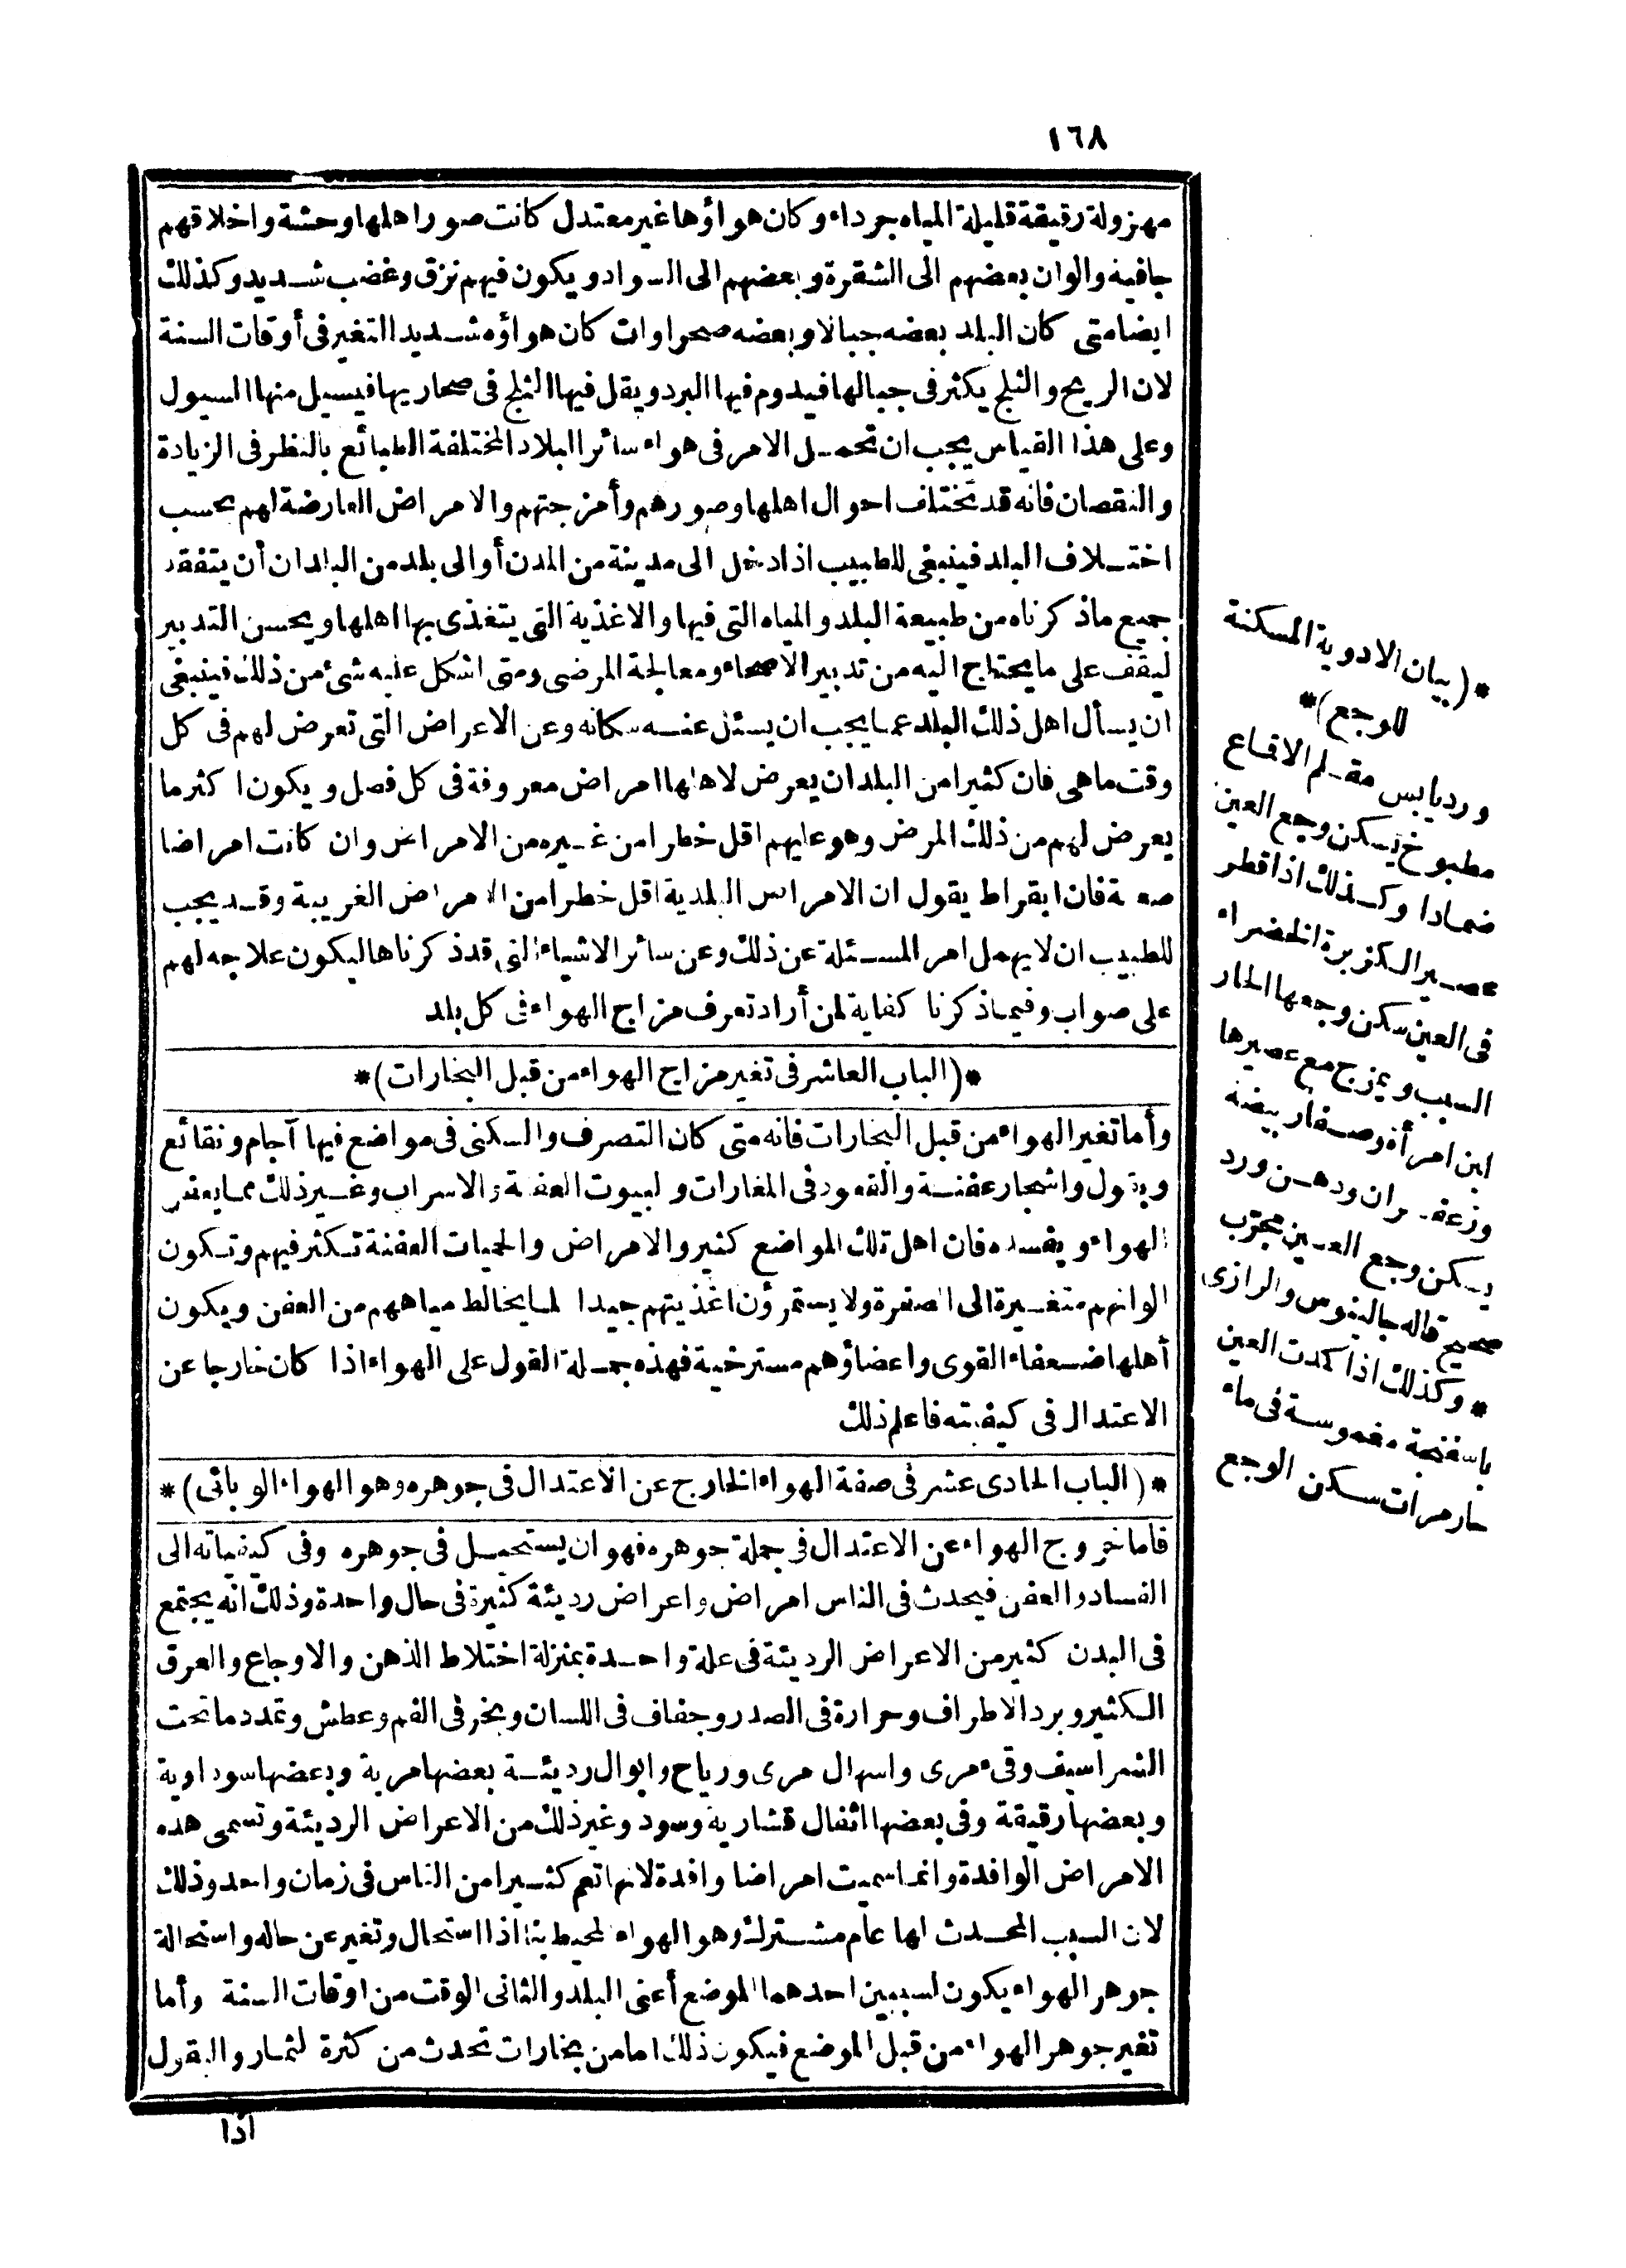 ١٦٨
مهزولة رقيقة قليلة المياه جرداء وكان هواؤها غير معتدل كانت صور اهلها وحشة واخلاقهم
جافية والوان بعضهم الى الشقرة وبعضهم الى السواد ويكون فيهم نزق وغضب شديد وكذلك
ايضا متى كان البلد بعضه جبالا وبعضه صحراوات كان هواؤه شديد التغير فى أوقات السنة
لان الريح والثلج يكثر فى جبالها فيدوم فيها البرد ويقل فيها الثلج فى صحاريها فيسيل منها السيول
وعلى هذا القياس يجب ان تحمل الامر فى هواء سائر البلاد المختلفة الطبائع بالنظر فى الزيادة
والنقصان فانه قد تختلف احوال اهلها وصورهم وأمزجتهم والامراض العارضة لهم بحسب
اختلاف البلد فينبغى للطبيب اذا دخل الى مدينة من المدن أو الى بلد من البلدان أن يتفقد
جميع ماذكرناه من طبيعة البلد والمياه التى فيها والاغذية التى يتغذى بها اهلها ويحسن التدبير
ليقف على ما يحتاج اليه من تدبير الاصحاء ومعالجة المرضى ومتى اشكل عليه شئ من ذلك فينبغى
ان يسأل اهل ذلك البلد عما يجب ان يسئل عنه سكانه وعن الاعراض التى تعرض لهم فى كل
وقت ماهى فان كثيرا من البلدان يعرض لاهلها امراض معروفة فى كل فصل ويكون اكثر ما
يعرض لهم من ذلك المرض وهو عليهم اقل خطرا من غيره من الامراض وان كانت امراضا
صعبة فان ابقراط يقول ان الامراض البلدية اقل خطرا من الامراض الغريبة وقد يجب
للطبيب ان لا يهمل امر المسئلة عن ذلك وعن سائر الاشياء التى قد ذكرناها ليكون علاجه لهم
على صواب وفيما ذكرنا كفاية لمن أراد تعرف مزاج الهواء فى كل بلد
*(الباب العاشر فى تغير مزاج الهواء من قبل البخارات)*
وأما تغير الهواء من قبل البخارات فانه متى كان التصرف والسكنى فى مواضع فيها آجام ونقائع
وبقول واشجار عفنة والقعود فى المغارات والبيوت العفنة والاسراب وغير ذلك مما يعفن
الهواء ويفسده فان اهل تلك المواضع كثير والامراض والحميات العفنة تكثر فيهم وتكون
الوانهم متغيرة الى الصفرة ولا يستمرؤن اغذيتهم جيدا لما يخالط مياههم من العفن ويكون
أهلها ضعفاء القوى واعضاؤهم مسترخية فهذه جملة القول على الهواء اذا كان خارجا عن
الاعتدال فى كيفيته فاعلم ذلك
*(الباب الحادى عشر فى صفة الهواء الخارج عن الاعتدال فى جوهره وهو الهواء الوبائى)*
فاما خروج الهواء عن الاعتدال فى جملة جوهره فهو ان يستحيل فى جوهره وفى كيفياته الى
الفساد والعفن فيحدث فى الناس امراض واعراض رديئة كثيرة فى حال واحدة وذلك انه يجتمع
فى البدن كثير من الاعراض الرديئة فى علة واحدة بمنزلة اختلاط الذهن والاوجاع والعرق
الكثير وبرد الاطراف وحرارة فى الصدر وجفاف فى اللسان وبخر فى الفم وعطش وتمدد ما تحت
الشراسيف وقىء مرى واسهال مرى ورياح وابوال رديئة بعضها مرية وبعضها سوداوية
وبعضها رقيقة وفى بعضها اثفال قشارية وسود وغير ذلك من الاعراض الرديئة وتسمى هذه
الامراض الوافدة وانما سميت امراضا وافدة لانها تعم كثيرا من الناس فى زمان واحد وذلك
لان السبب المحدث لها عام مشترك وهو الهواء المحيط بنا اذا استحال وتغير عن حاله واستحالة
جوهر الهواء يكون لسببين احدهما الموضع أعنى البلد والثانى الوقت من اوقات السنة وأما
تغير جوهر الهواء من قبل الموضع فيكون ذلك اما من بخارات تحدث من كثرة الثمار والبقول
اذا
*(بيان الادوية المسكنة
للوجع)*
ورد يابس مقلم الاقماع
مطبوخ يسكن وجع العين
ضمادا وكذلك اذا قطر
عصير الكزبرة الخضراء
فى العين سكن وجعها الحار
السبب ويمزج مع عصيرها
لبن امرأة وصفار بيضة
وزعفران ودهن ورد
يسكن وجع العين مجرّب
صحيح قاله جالينوس والرازى
* وكذلك اذا كمدت العين
باسفنجة مغموسة فى ماء
حار مرات سكن الوجع